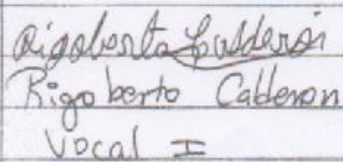 Rigoberto Calderon
Rigoberto Calderon
Vocal I